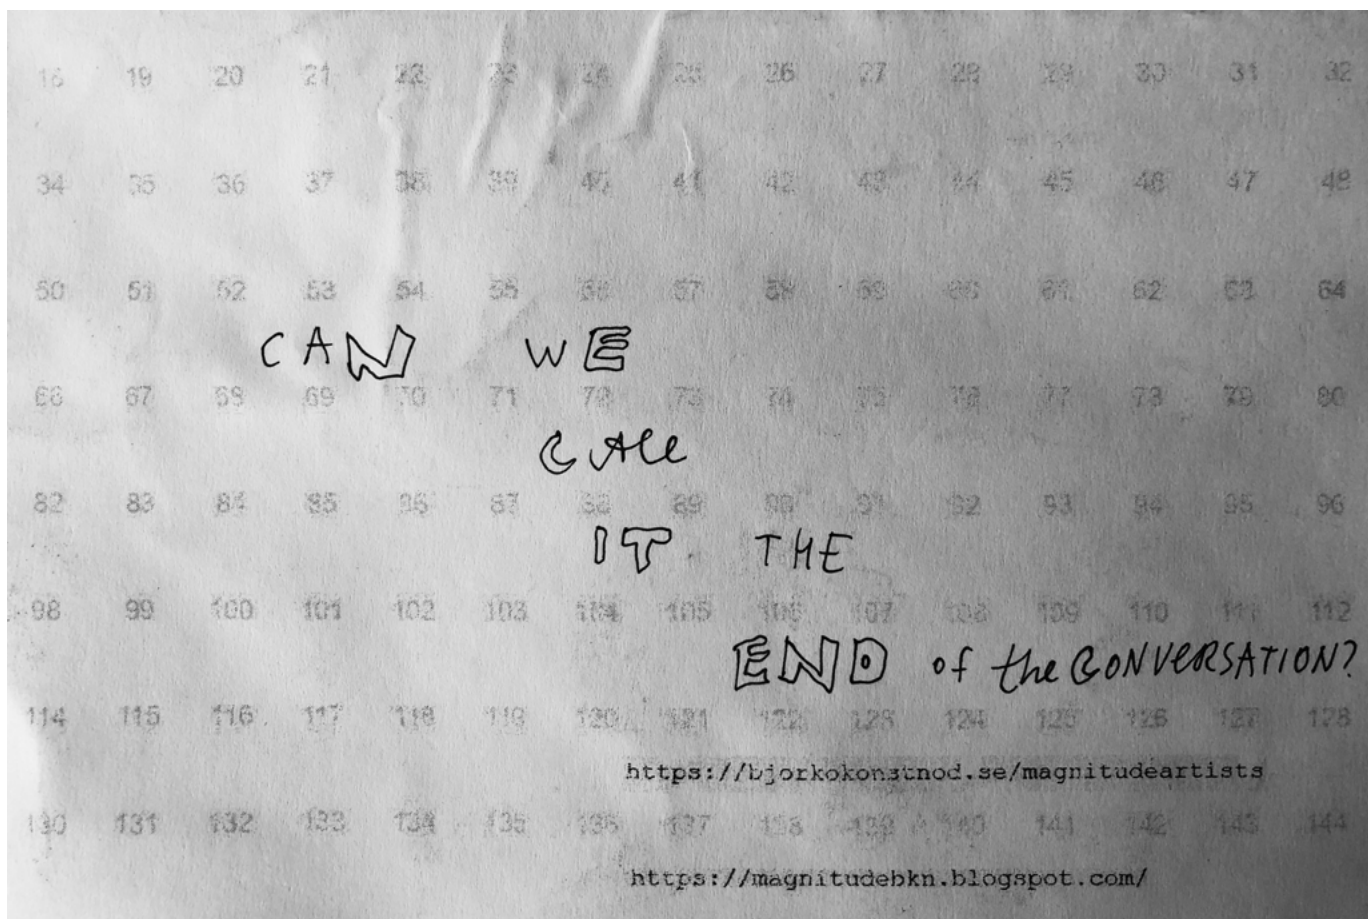 18 19 20 21 22 23 24 25 26 27 28 29 30 31 32
34 35 36 37 38 39 40 41 42 43 44 45 46 47 48
50 51 52 53 54 55 56 57 58 59 60 61 62 63 64
CAN WE
66 67 68 69 70 71 72 73 74 75 76 77 78 79 80
CAll
82 83 84 85 86 87 88 89 90 91 92 93 94 95 96
IT THE
98 99 100 101 102 103 104 105 106 107 108 109 110 111 112
END of the CONVERSATION?
114 115 116 117 118 119 120 121 122 123 124 125 126 127 128
https://bjorkokonstnod.se/magnitudeartists
130 131 132 133 134 135 136 137 138 139 140 141 142 143 144
https://magnitudebkn.blogspot.com/